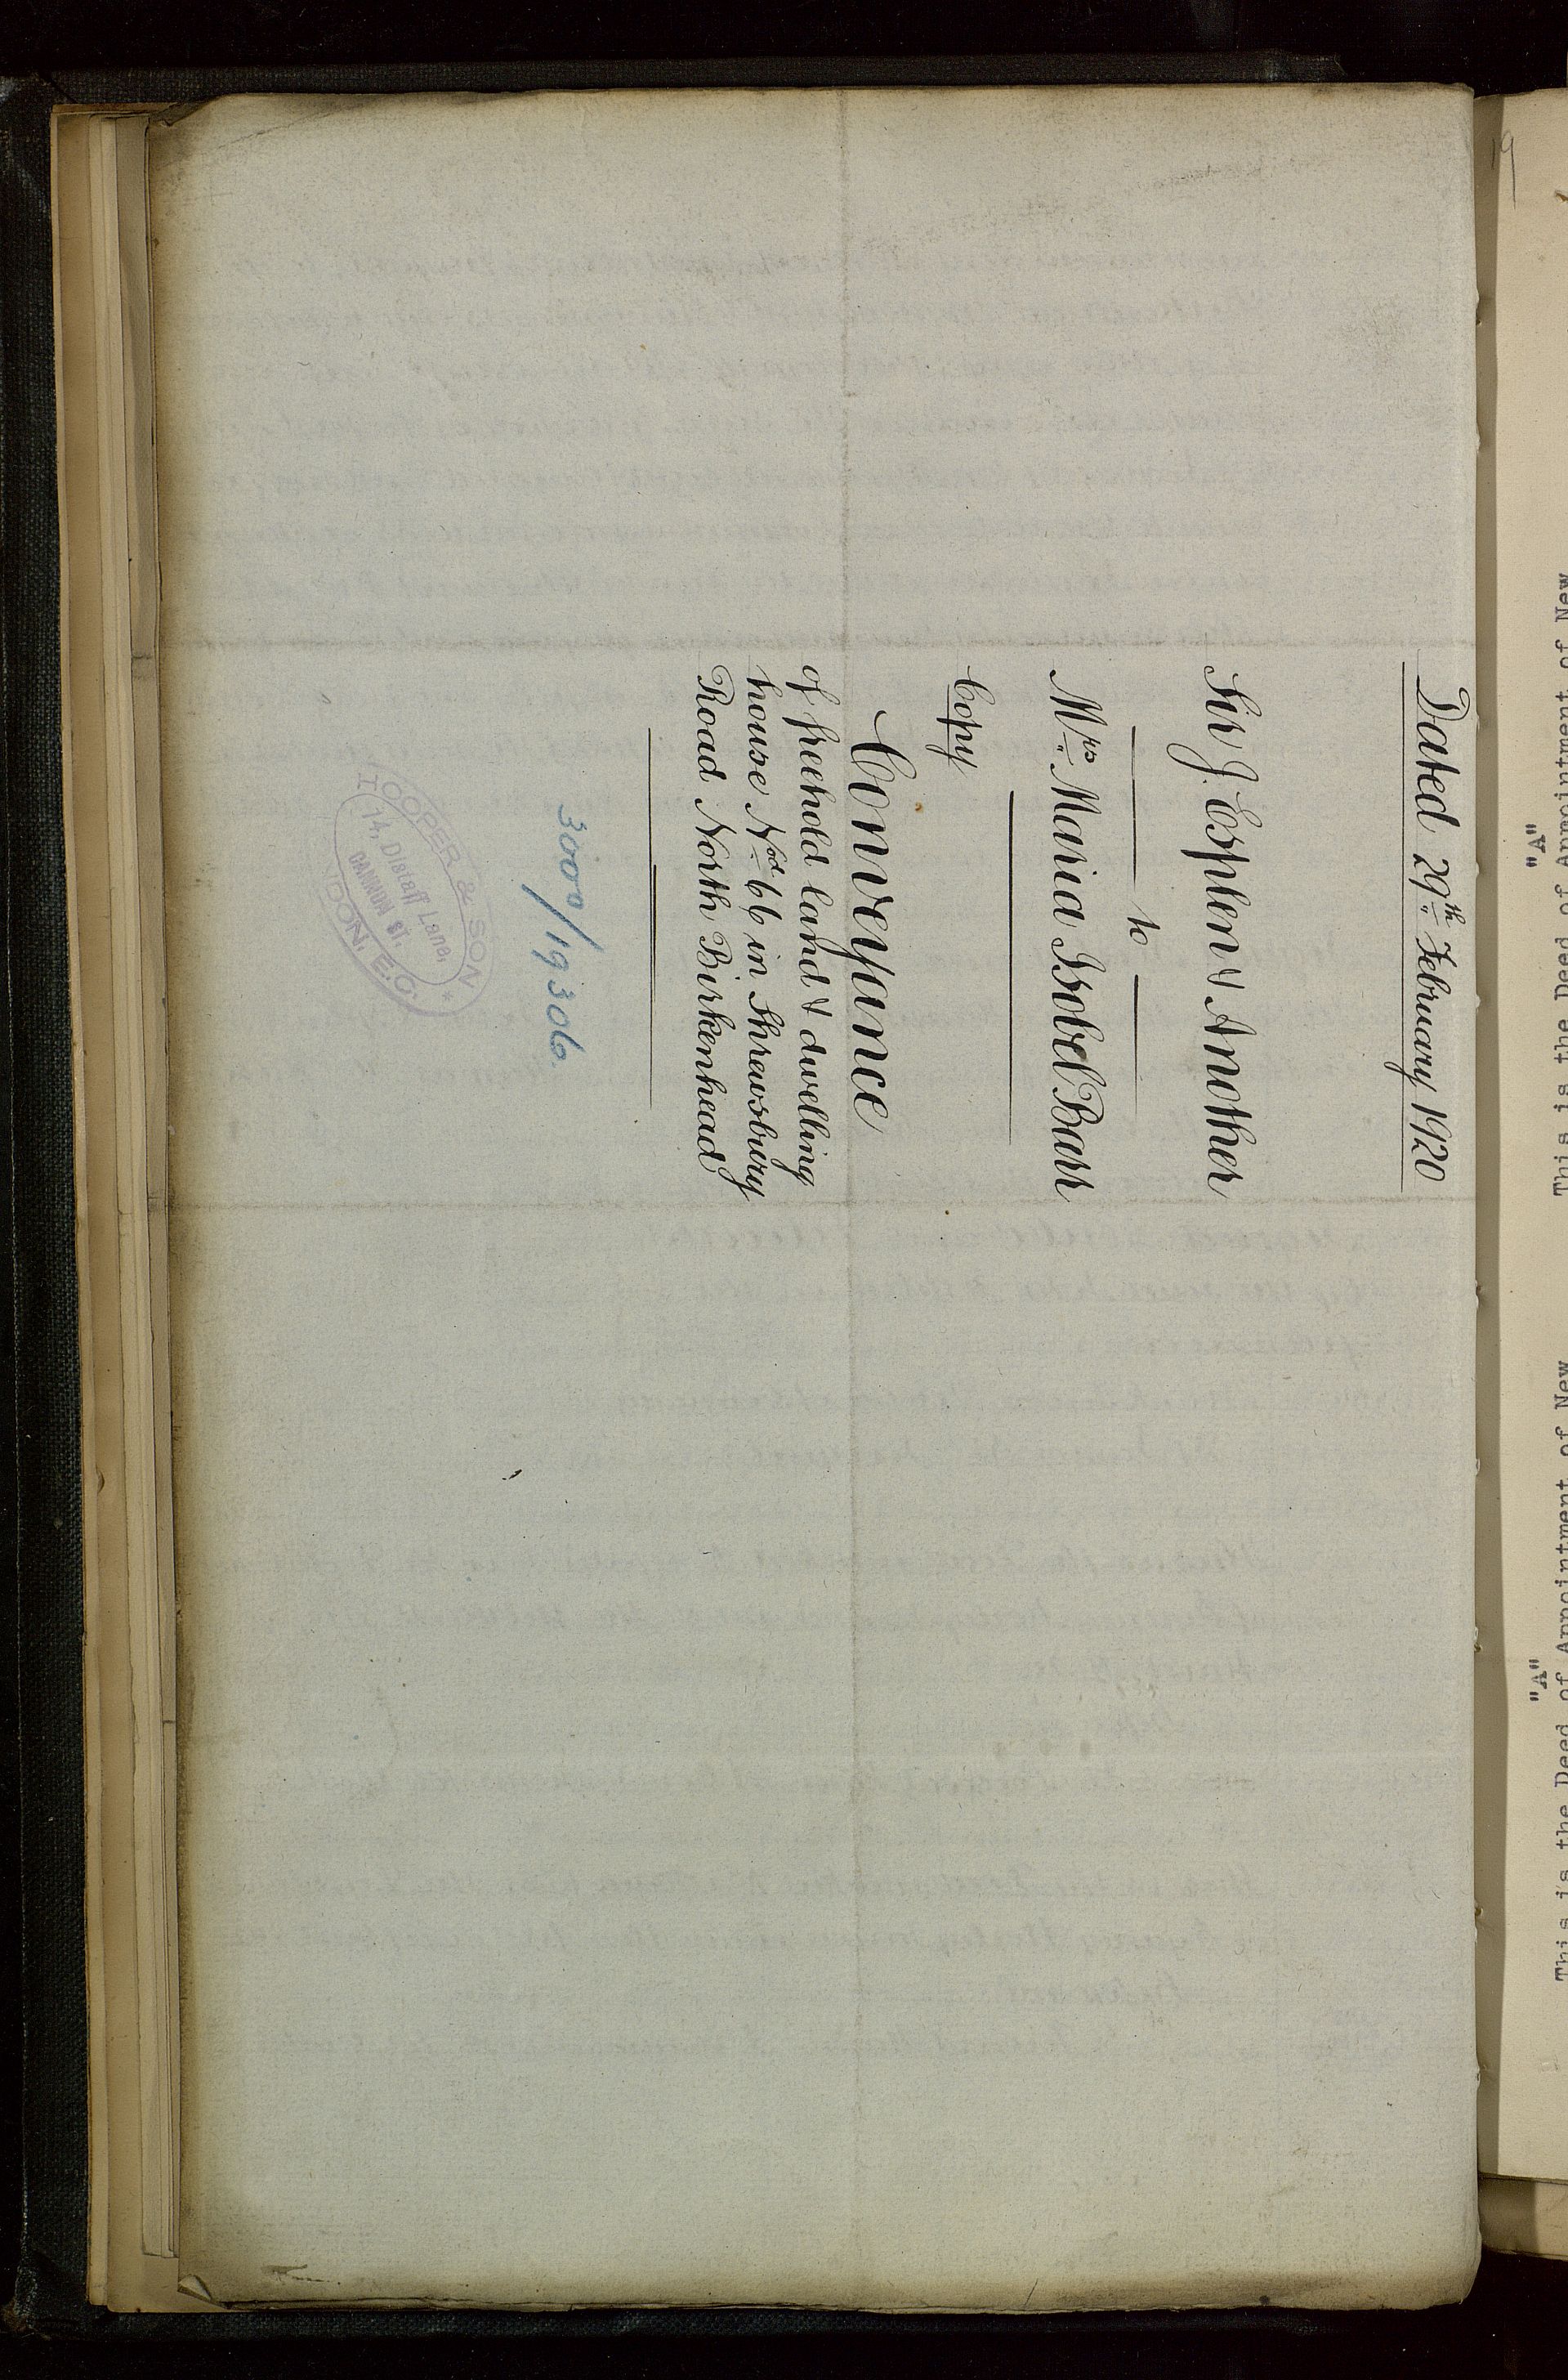 Dated 29th February 1920
Sir J. Esplen & Another
to
Mrs Maria Isobel Barr
Copy
Conveyance
of freehold land & dwelling
house Nod 66 in Shrewsbury
Road North Birkenhead
3000/19306
OOPER & SON *
14, Distaff Lane,
CANNON ST.
DON, E.C.
19
"A"
This is the Deed of Appointment of New
"A"
This is the Deed of Appointment of New